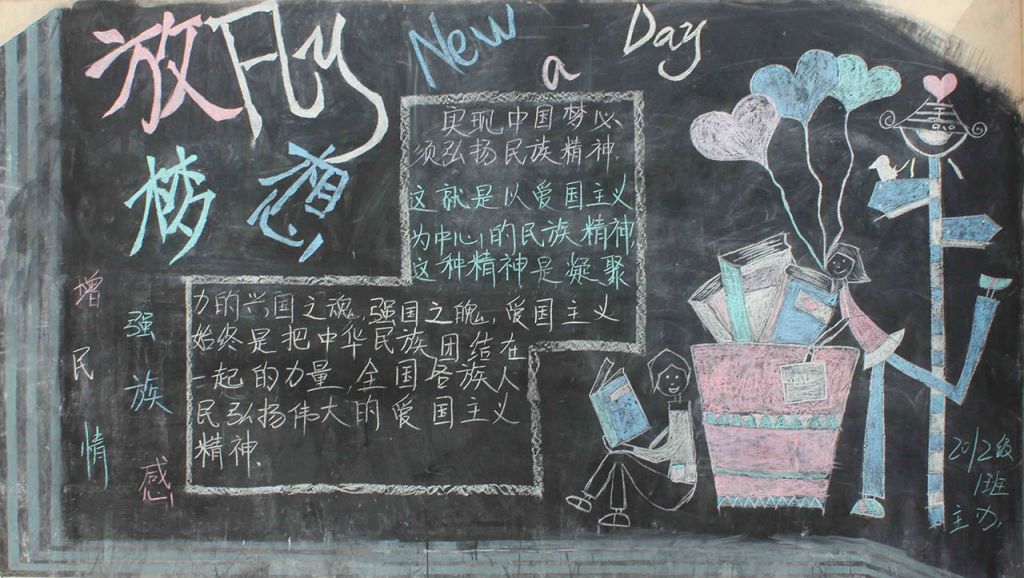 放Fly
New
a
Day
梦想
实现中国梦必
须弘扬民族精神.
这就是以爱国主义
为中心的民族精神,
这种精神是凝聚
力的兴国之魂,强国之魄,爱国主义
始终是把中华民族团结在
一起的力量,全国各族人
民弘扬伟大的爱国主义
精神.
增强民族情感
2012级
1班
主办